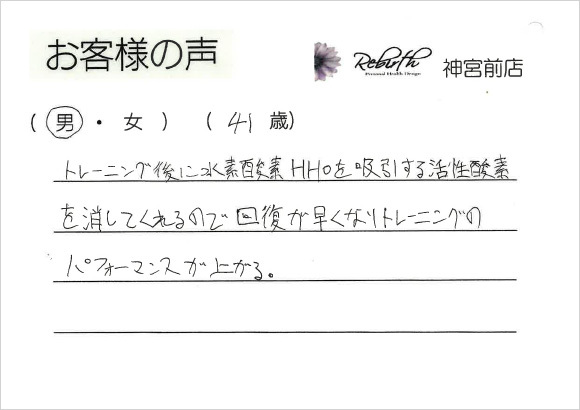 お客様の声
Rebirth
Personal Health Design
神宮前店
(男・女) (41歳)
トレーニング後に水素酸素HHOを吸引する活性酸素
を消してくれるので回復が早くなりトレーニングの
パフォーマンスが上がる。